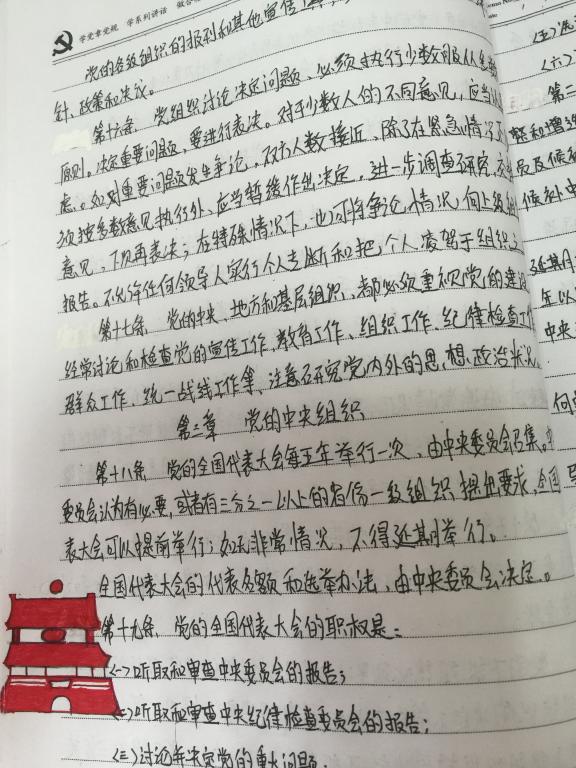 学党章党规 学系列讲话 做合
党的各级组织的报刊和其他宣传
针、政策和决议。
第十六条 党组织讨论决定问题,必须执行少数服从多数
原则。决定重要问题,要进行表决。对于少数人的不同意见,应当认
虑。如对重要问题发生争论,双方人数接近,除了在紧急情况下
须按多数意见执行外,应当暂缓作出决定,进一步调查研究,交
意见,下次再表决;在特殊情况下,也可将争论情况向上级
报告。不允许任何领导人实行个人专断和把个人凌驾于组织之
第十七条 党的中央、地方和基层组织,都必须重视党的建设
经常讨论和检查党的宣传工作、教育工作、组织工作、纪律检查工
群众工作、统一战线工作等,注意研究党内外的思想政治状况。
第三章 党的中央组织
第十八条 党的全国代表大会每五年举行一次,由中央委员会召集。中
委员会认为有必要,或者有三分之一以上的省一级组织提出要求,全国
表大会可以提前举行;如无非常情况,不得延期举行。
全国代表大会的代表名额和选举办法,由中央委员会决定。
第十九条 党的全国代表大会的职权是:
(一)听取和审查中央委员会的报告;
(二)听取和审查中央纪律检查委员会的报告;
(三)讨论并决定党的重大问题
(五)
(六)
第二
和增
员及候
候补中
延期
年以
中央
何